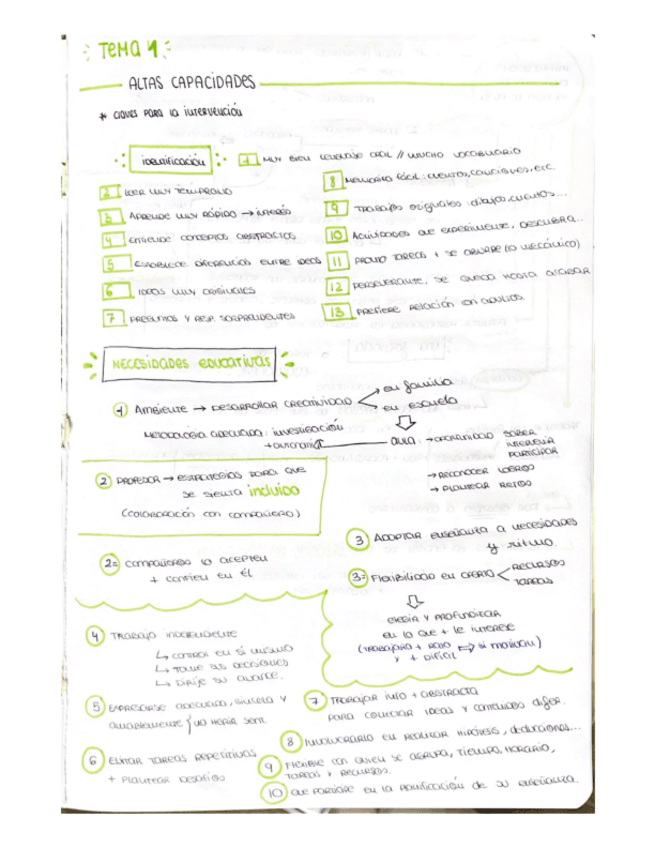 TEMA 1
ALTAS CAPACIDADES
* CLAVES PARA LA INTERVENCIÓN
IDENTIFICACIÓN
1 MUY BIEN LENGUAJE ORAL // MUCHO VOCABULARIO
2 LEER MUY TEMPRANO
3 APRENDE MUY RÁPIDO → INTERÉS
4 ENTIENDE CONCEPTOS ABSTRACTOS
5 ESTABLECE DIFERENCIAS ENTRE IDEAS
6 IDEAS MUY ORIGINALES
7 PREGUNTAS Y RESP. SORPRENDENTES
8 MEMORIZA FÁCIL: CUENTOS, CANCIONES, ETC.
9 TRABAJOS ORIGINALES: DIBUJOS, CUENTOS...
10 ACTIVIDADES QUE EXPERIMENTE, DESCUBRA...
11 PRONTO TAREAS + SE ABURRE (LO MECÁNICO)
12 PERSEVERANTE, SE QUEDA HASTA ACABAR
13 PREFIERE RELACIÓN CON ADULTOS.
NECESIDADES EDUCATIVAS
1 AMBIENTE → DESARROLLAR CREATIVIDAD
en familia
en escuela
METODOLOGÍA ADECUADA: INVESTIGACIÓN
+ AUTONOMÍA
AULA: → OPORTUNIDAD
SABER
INTERVENIR
PARTICIPAR
→ RECONOCER LOGROS
→ PLANTEAR RETOS
2 PROFESOR → ESTRATEGIAS PARA QUE
SE SIENTA INCLUIDO
(COLABORACIÓN CON COMPAÑERO)
2= COMPAÑEROS LO ACEPTEN
+ CONFÍEN EN ÉL
3 ADAPTAR ENSEÑANZA A NECESIDADES
Y RITMO.
3= FLEXIBILIDAD EN OFERTA
RECURSOS
TAREAS
ELEGIR Y PROFUNDIZAR
EN LO QUE + LE INTERESE
(TRABAJARÁ + RATO ↔ SI MOTIVAN)
Y + DIFÍCIL
4 TRABAJO INDEPENDIENTE
↳ CONTROL EN SÍ MISMO
↳ TOME SUS DECISIONES
↳ DIRIJA SU AVANCE.
5 EXPRESARSE ADECUADA, SINCERA Y
AMABLEMENTE } NO HERIR SENT.
6 EVITAR TAREAS REPETITIVAS
+ PLANTEAR DESAFÍOS
7 TRABAJAR INFO + ABSTRACTA
PARA CONECTAR IDEAS Y CONTENIDOS DIFER.
8 INVOLUCRARLO EN PRODUCIR HIPÓTESIS, DEDUCCIONES...
9 FLEXIBLE CON QUIEN SE AGRUPA, TIEMPO, HORARIO,
TAREAS Y RECURSOS.
10 QUE PARTICIPE EN LA PLANIFICACIÓN DE SU ENSEÑANZA.